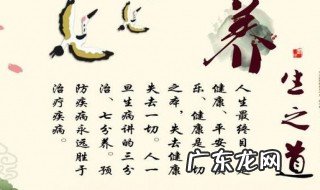 养
生之道
人生最终目
健康、平安
乐、健康是
之本，失去健康
失去一切。人一
旦生病讲的三分
治、七分养。预
防疾病永远胜于
治疗疾病。
广东龙网